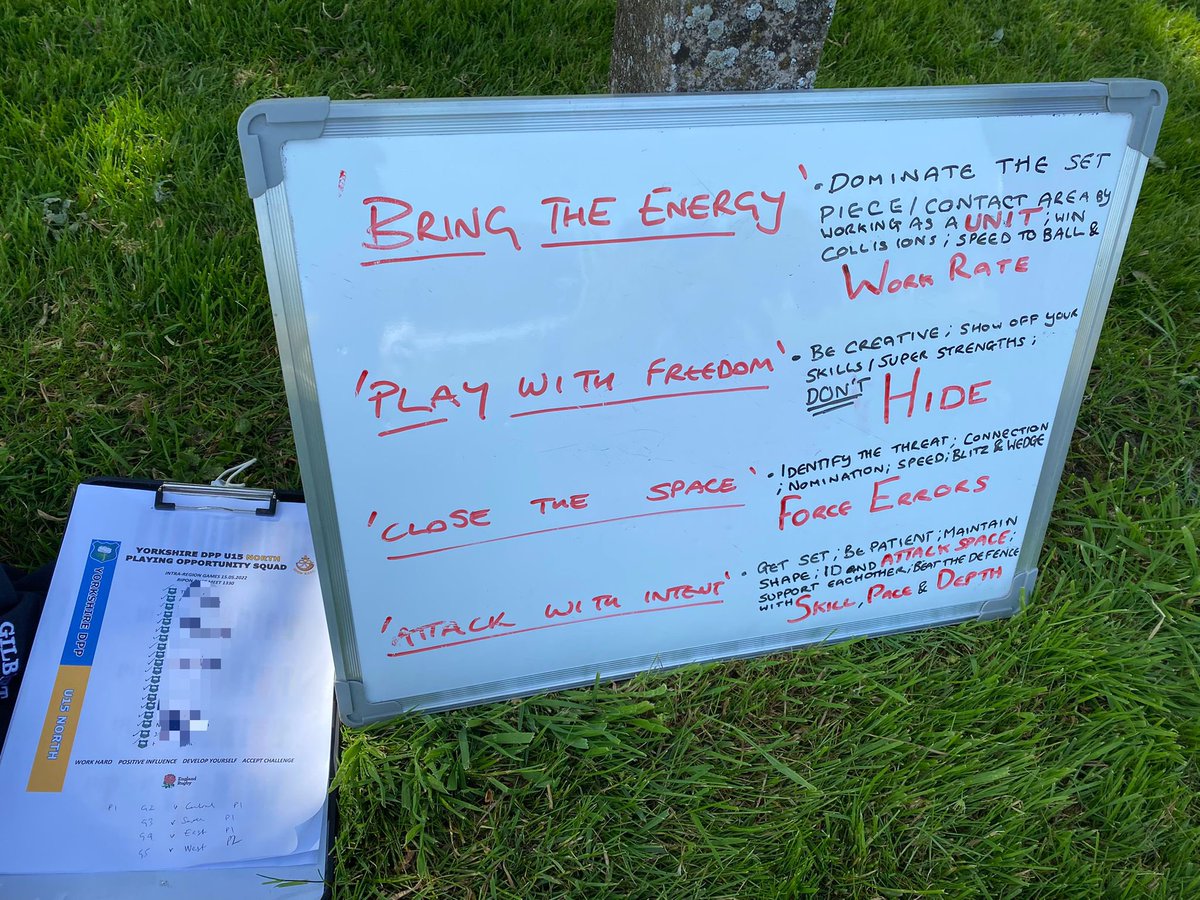 'BRING THE ENERGY'
• DOMINATE THE SET
PIECE/CONTACT AREA BY
WORKING AS A UNIT; WIN
COLLISIONS; SPEED TO BALL &
WORK RATE
'PLAY WITH FREEDOM'
• BE CREATIVE; SHOW OFF YOUR
SKILLS/SUPER STRENGTHS;
DON'T HIDE
'CLOSE THE SPACE'
• IDENTIFY THE THREAT; CONNECTION
; NOMINATION; SPEED; BLITZ & WEDGE
FORCE ERRORS
'ATTACK WITH INTENT'
• GET SET; BE PATIENT; MAINTAIN
SHAPE; ID AND ATTACK SPACE;
SUPPORT EACHOTHER; BEAT THE DEFENCE
WITH SKILL, PACE & DEPTH
YORKSHIRE DPP U15 NORTH
PLAYING OPPORTUNITY SQUAD
INTRA-REGION GAMES 15.05.2022
MEET 1330
YORKSHIRE DPP
U15 NORTH
WORK HARD POSITIVE INFLUENCE DEVELOP YOURSELF ACCEPT CHALLENGE
England
Rugby
P1 G2 v Central P1
G3 v P1
G4 v East P1
G5 v West P2